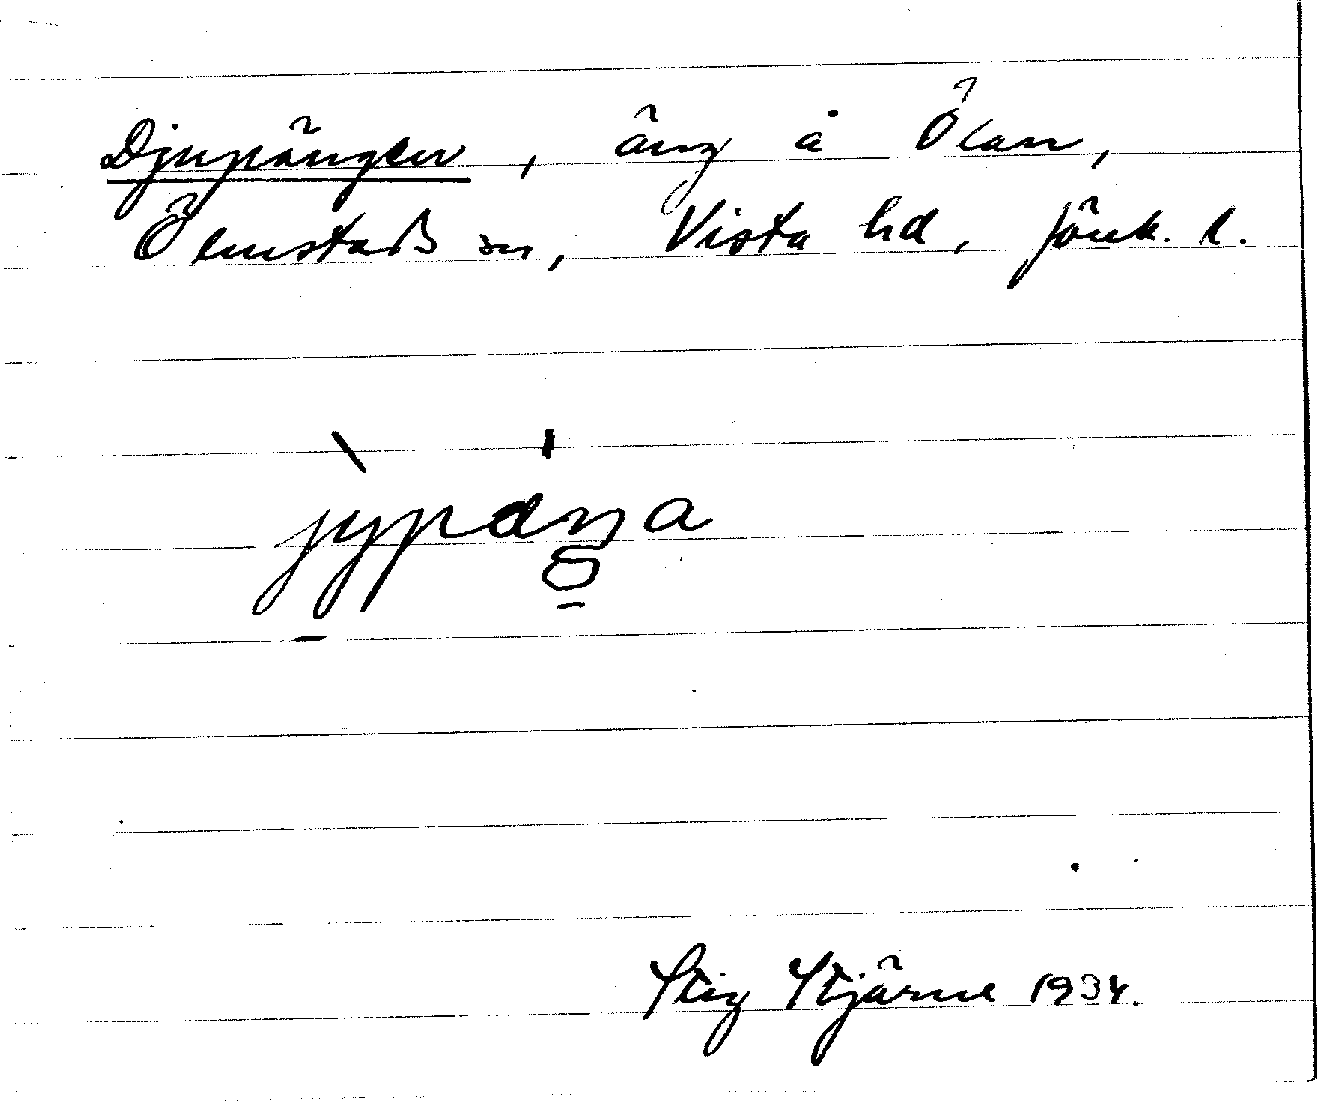 Djupängen, äng å Ölan,
Ölmstads sn, Vista hd, Jönk. l.
jypäŋa
Stig Stjärne 1934.